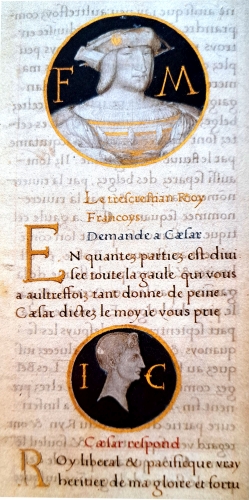 F M
Le treschrestian Roy
Francoys
Demande a Cæsar
EN quantes parties est diui
see toute la gaule qui vous
a aultreffois tant donne de peine
Cæsar dictez le moy ie vous prie
I C
Cæsar respond
ROy liberal & pacifique vray
heritier de ma gloire et fortu